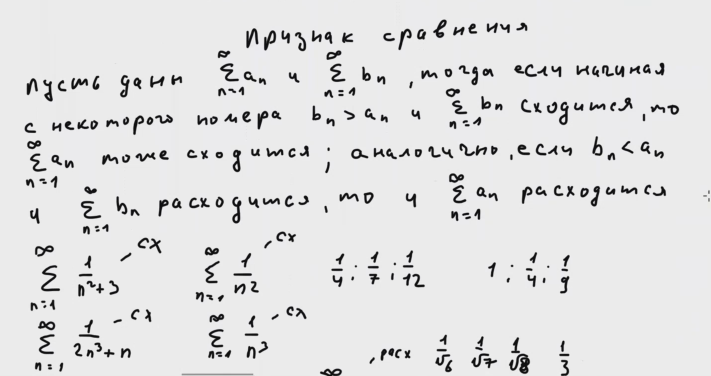 Признак сравнения
пусть данн ∞∑n=1 an и ∞∑n=1 bn, тогда если начиная
с некоторого номера bn > an и ∞∑n=1 bn сходится, то
∞∑n=1 an тоже сходится; аналогично, если bn < an
и ∞∑n=1 bn расходится, то и ∞∑n=1 an расходится
∞∑n=1 1/n²+3 - сх ∞∑n=1 1/n2 , сх 1/4 ; 1/7 ; 1/12 1 ; 1/4 ; 1/9
∞∑n=1 1/2n³+n - сх ∞∑n=1 1/n³ - сх
∞ , расх 1/√6 1/√7 1/√8 1/3